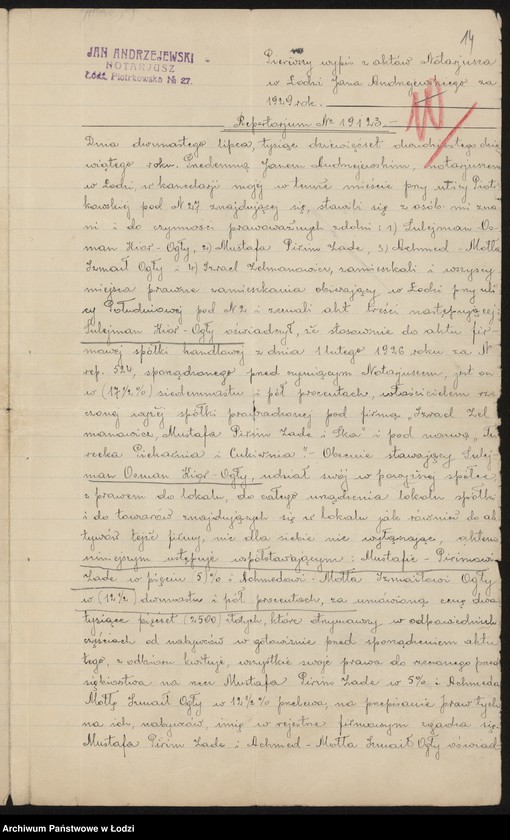 14
JAN ANDRZEJEWSKI
NOTARJUSZ
Łódź, Piotrkowska № 27.
Pierwszy wypis z aktów Notarjusza
w Łodzi Jana Andrzejewskiego za
1929 rok.
10
Repertorjum № 19123.-
Dnia dwunastego lipca, tysiąc dziewięćset dwudziestego dzie
wiątego roku. Przedemną Janem Andrzejewskim, notarjuszem
w Łodzi, w kancelarji mojej w temże mieście przy ulicy Piotr
kowskiej pod № 27 znajdującej się, stawili się z osób mi zna
ni i do czynności prawoważnych zdolni: 1) Sulejman-Os-
man Kior-Ogły, 2) Mustafa Pirim Zade, 3) Achmed-Motła
Izmaił Ogły i 4) Izrael Zelmanowicz, zamieszkali i wszyscy
miejsca prawne zamieszkania obierający w Łodzi przy uli
cy Południowej pod № 2 i zeznali akt treści następującej:
Sulejman Kior-Ogły oświadczył, że stosownie do aktu fir
mowej spółki handlowej z dnia 1 lutego 1926 roku za №
rep. 524, sporządzonego przed czyniącym Notarjuszem, jest on
w (17½%) siedemnastu i pół procentach, właścicielem rze
czonej wyżej spółki prowadzonej pod firmą „Izrael Zel
manowicz, Mustafa Pirim Zade i S-ka" i pod nazwą „Tu
recka Piekarnia i Cukiernia".- Obecnie stawający Sulej
man Osman Kior-Ogły, udział swój w powyższej spółce,
z prawem do lokalu, do całego urządzenia lokalu spółki
i do towarów znajdujących się w lokalu jak również do ak
tywów tejże firmy, nic dla siebie nie wyłączając, aktem
niniejszym ustępuje współstawającym: Mustafie-Pirimowi
Zade w pięciu 5% i Achmedowi-Motła Izmaiłowi Ogły
w (12½) dwunastu i pół procentach, za umówioną cenę dwa
tysiące pięćset (2500) złotych, które otrzymawszy w odpowiednich
częściach od nabywców w gotowiźnie przed sporządzeniem aktu
tego, z odbioru kwituje, wszystkie swoje prawa do rzeczonego przed
siębiorstwa na rzecz Mustafa Pirim Zade w 5% i Achmeda
Motłę Izmaił Ogły w 12½% przelewa, na przepisanie praw tych
na ich, nabywców, imię w rejestrze firmowym zgadza się.
Mustafa Pirim Zade i Achmed-Motła Izmaił Ogły oświad
Archiwum Państwowe w Łodzi